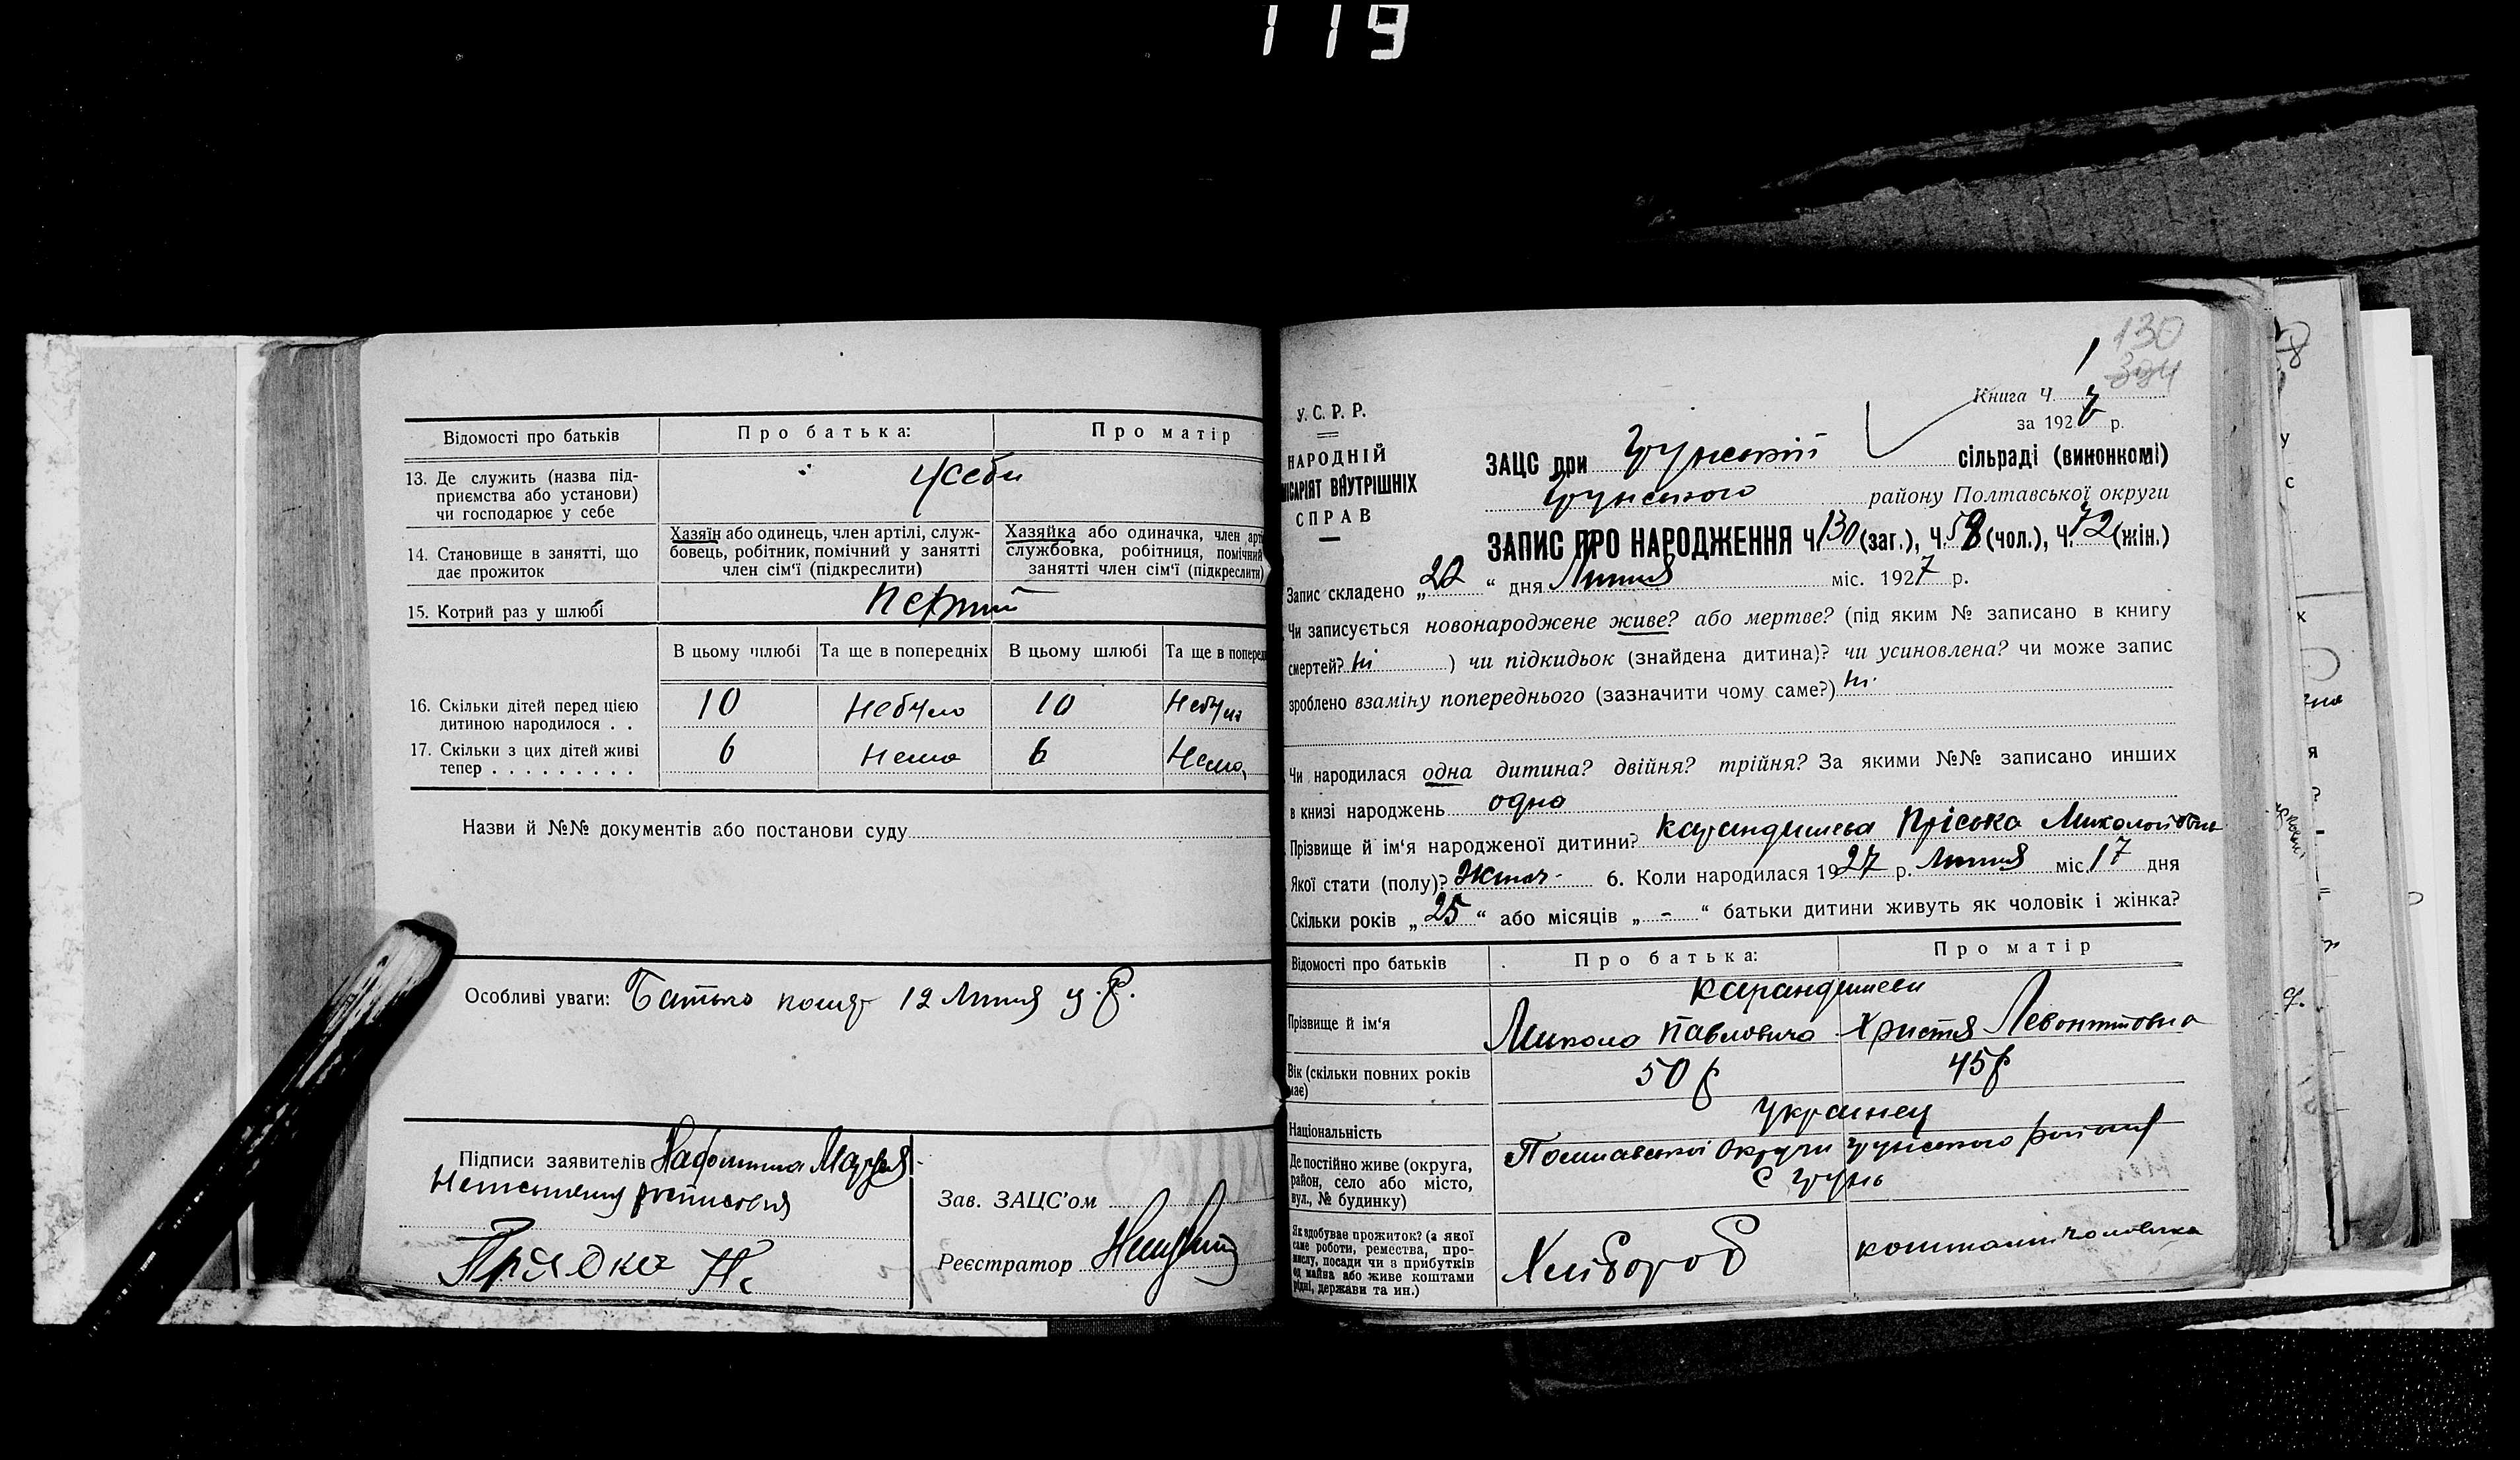 119
Відомості про батьків
Про батька:
Про матір
13. Де служить (назва під-
приємства або установи)
чи господарює у себе
усеби
14. Становище в занятті, що
дає прожиток
Хазяїн або одинець, член артілі, служ-
бовець, робітник, помічний у занятті
член сім'ї (підкреслити)
Хазяйка або одиначка, член арті
службовка, робітниця, помічний
занятті член сім'ї (підкреслити)
15. Котрий раз у шлюбі
Перший
В цьому шлюбі
Та ще в попередніх
В цьому шлюбі
Та ще в поперед
16. Скільки дітей перед цією
дитиною народилося . .
10 Небуло 10 Небуло
17. Скільки з цих дітей живі
тепер . . . . . . . . .
6 Нема 6 Нема
Назви й №№ документів або постанови суду
Особливі уваги: Батько помер 12 Липня ц.р.
Підписи заявителів
Неписьменну росписовся
Прядка
Зав. ЗАЦС'ом
Реєстратор
130
1
Книга Ч.
за 1927 р.
У. С. Р. Р.
НАРОДНІЙ
ІСАРІЯТ ВНУТРІШНІХ
СПРАВ
ЗАЦС при Грунській сільраді (виконкомі)
Грунського району Полтавської округи
ЗАПИС ПРО НАРОДЖЕННЯ Ч. 130 (заг.), Ч. 58 (чол.), Ч. 72 (жін.)
Запис складено „22“ дня Липня міс. 1927 р.
Чи записується новонароджене живе? або мертве? (під яким № записано в книгу
смертей? ні ) чи підкидьок (знайдена дитина)? чи усиновлена? чи може запис
зроблено взаміну попереднього (зазначити чому саме?) ні
Чи народилася одна дитина? двійня? трійня? За якими №№ записано инших
в книзі народжень одна
Прізвище й ім'я народженої дитини? Карандишева Пріська Миколаївна
Якої стати (полу)? Жіноч. 6. Коли народилася 1927 р. Липня міс 17 дня
Скільки років „25“ або місяців „-“ батьки дитини живуть як чоловік і жінка?
Відомості про батьків
Про батька:
Про матір
Карандишеви
Прізвище й ім'я
Микола Павловича Христя Левонтіовна
Вік (скільки повних років
має)
50 р 45 р
Національність
Украинец
Де постійно живе (округа,
район, село або місто,
вул., № будинку)
Полтавської Округи Грунського району
С Грунь
Як здобуває прожиток? (з якої
саме роботи, ремества, про-
мислу, посади чи з прибутків
од майна або живе коштами
рідні, держави та ин.)
Хлібороб
коштами чоловіка